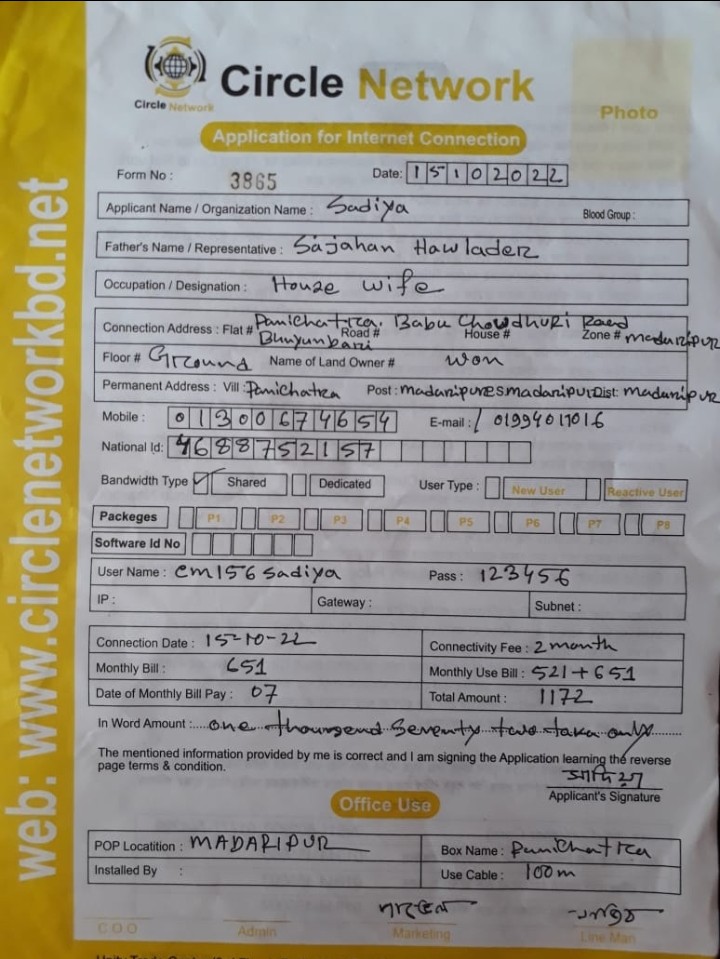 Circle Network
Circle Network
Photo
Application for Internet Connection
Form No : 3865 Date: 15102022
Applicant Name / Organization Name : Sadiya Blood Group :
Father's Name / Representative : Sajahan Hawlader
Occupation / Designation : House wife
Panichatra. Babu Chowdhuri Raed
Connection Address : Flat # Road # House # Zone # madaripur
Bhuyunbari
Floor # Ground Name of Land Owner # won
Permanent Address : Vill : Panichatra Post : madaripur PS madaripur Dist: Madaripur
Mobile : 01300674654 E-mail : / 01994011016
National Id: 4688752157
Bandwidth Type Shared Dedicated User Type : New User Reactive User
Packeges P1 P2 P3 P4 P5 P6 P7 P8
Software Id No
User Name : cm156 sadiya Pass : 123456
IP : Gateway : Subnet :
Connection Date : 15-10-22 Connectivity Fee : 2 month
Monthly Bill : 651 Monthly Use Bill : 521 + 651
Date of Monthly Bill Pay : 07 Total Amount : 1172
In Word Amount :..... one thounsend seventy two taka only
The mentioned information provided by me is correct and I am signing the Application learning the reverse
page terms & condition.
সাদিয়া
Applicant's Signature
Office Use
POP Locatition : MADARIPUR Box Name : Panichatra
Installed By : Use Cable : 100m
C.O.O Admin Marketing Line Man
web: www.circlenetworkbd.net